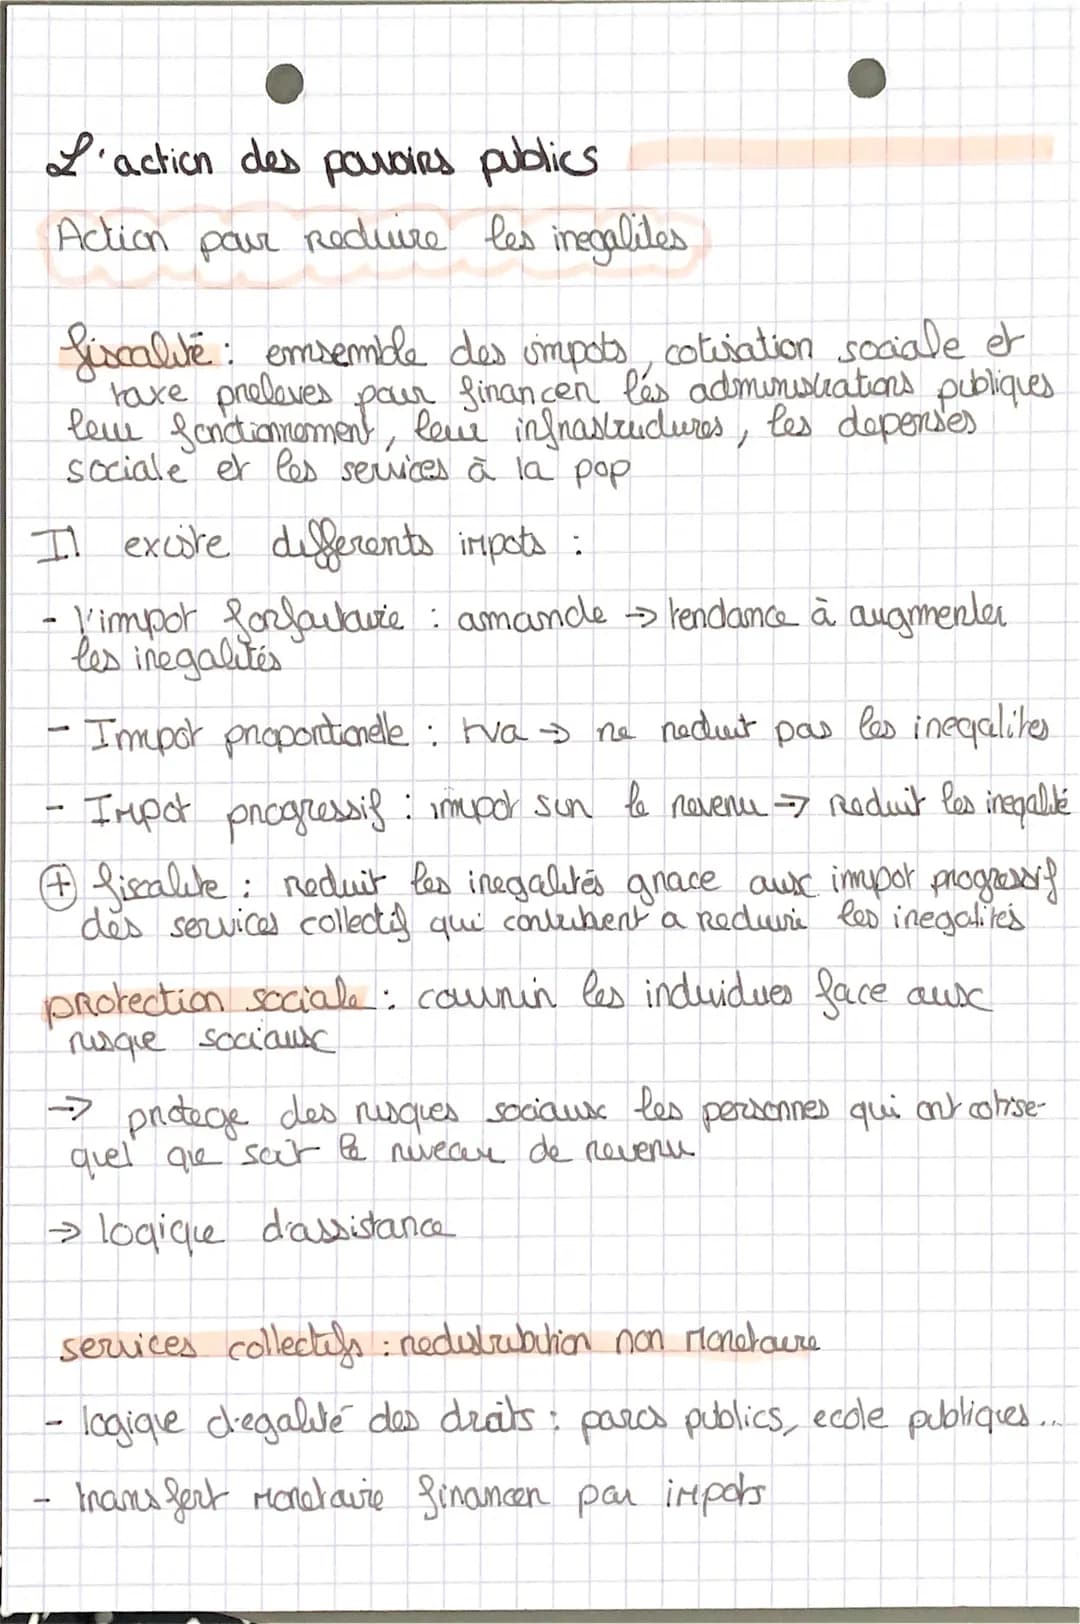 L'action des pouvoirs publics
Action pour reduire les inegalites
fiscalité : emsemble des impots, cotisation sociale et
taxe preleves pour financer les administrations publiques
leur fonctionnement, leur infrastrudures, les depenses
sociale et les services à la pop
Il existe differents impots :
- l'impot forfautaire : amande → tendance à augmenter
les inegalités
- Impot proportionelle : tva → ne reduit pas les inegalites
- Impot progressif : impot sur le revenu → Reduit les inegalité
+ fiscalite : reduit les inegalités grace aux impot progressif
des services collectif qui contribent a reduire les inegalités
protection sociale : couvrir les individues face aux
risque sociaux
→ protege des risques sociaux les personnes qui ont cotise
quel que soit le niveau de revenu
→ logique d'assistance
services collectifs : redistribution non monetaire
- logique d'egalité des droits : parcs publics, ecole publiques...
- transfert monetaire financer par impots